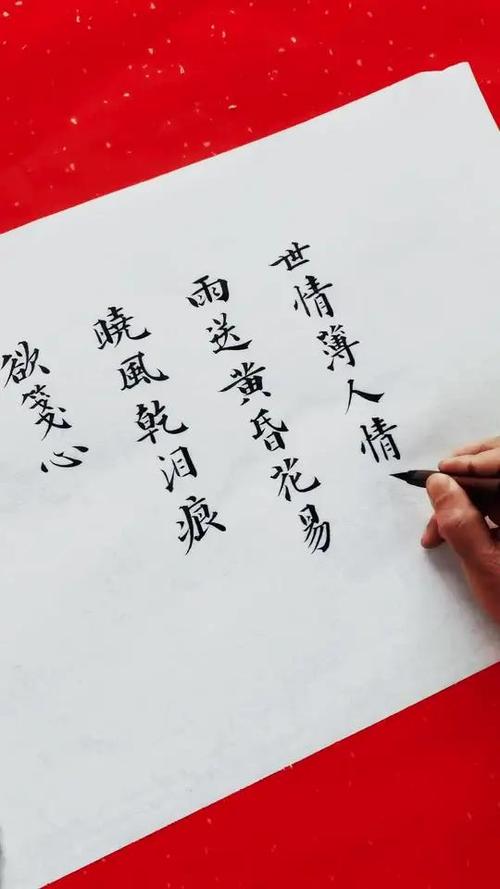 世情薄人情
雨送黄昏花易
曉風乾泪痕
欲箋心